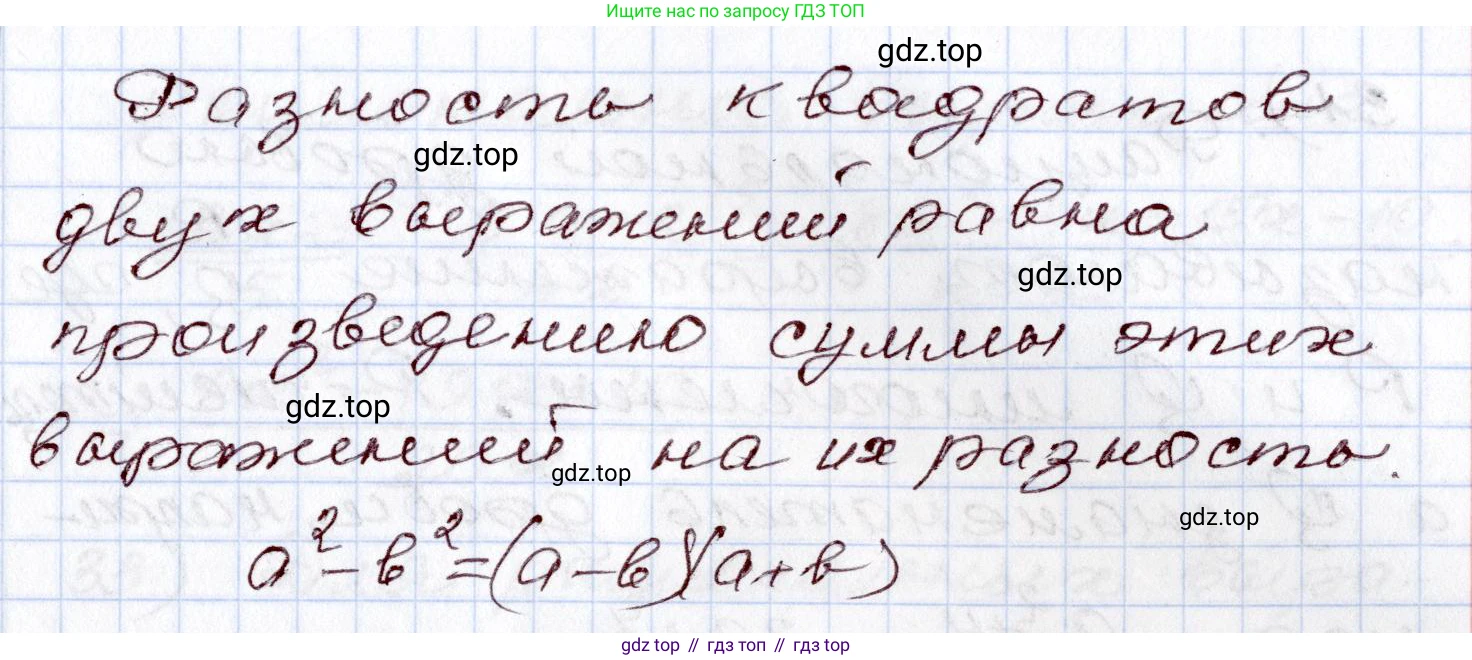 Ищите нас по запросу ГДЗ ТОП
gdz.top
Разность квадратов
gdz.top
двух выражений равна
gdz.top
произведению суммы этих
gdz.top
выражений на их разность.
gdz.top
gdz.top
a² - b² = (a - b)(a + b)
gdz.top // гдз топ // гдз top